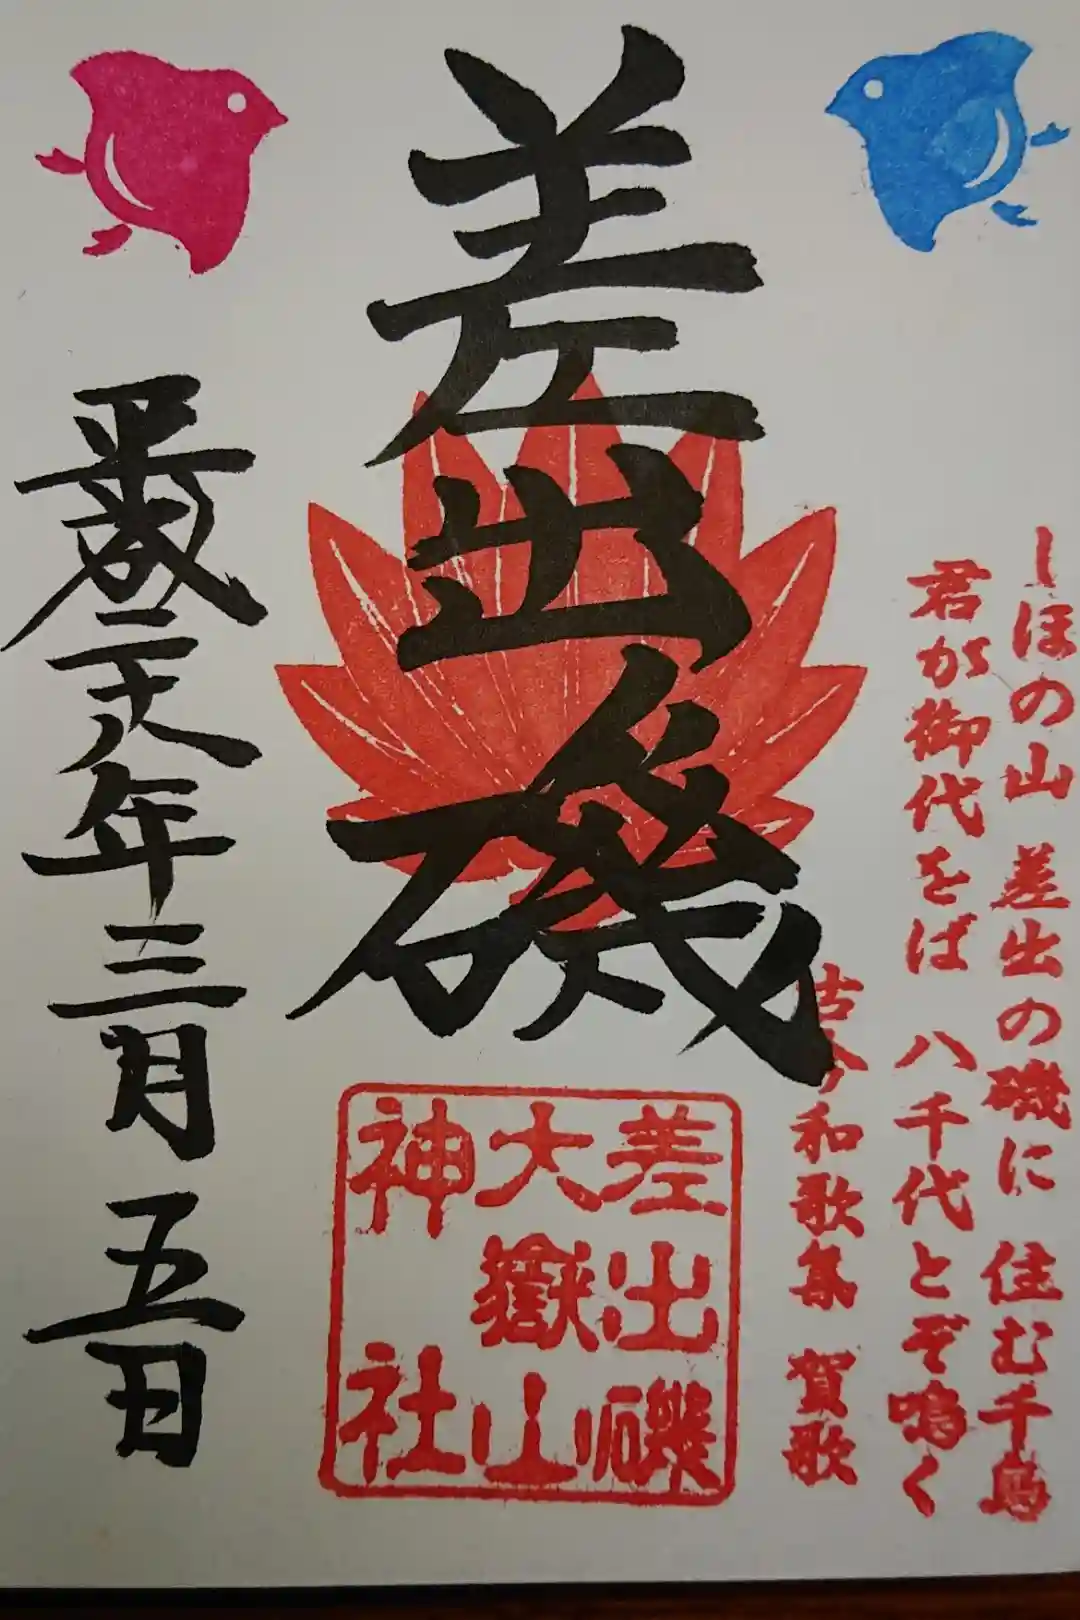 しほの山 差出の磯に 住む千鳥
君が御代をば 八千代とぞ鳴く
古今和歌集 賀歌
差出磯
差出磯
大嶽山
神社
平成二十八年三月五日